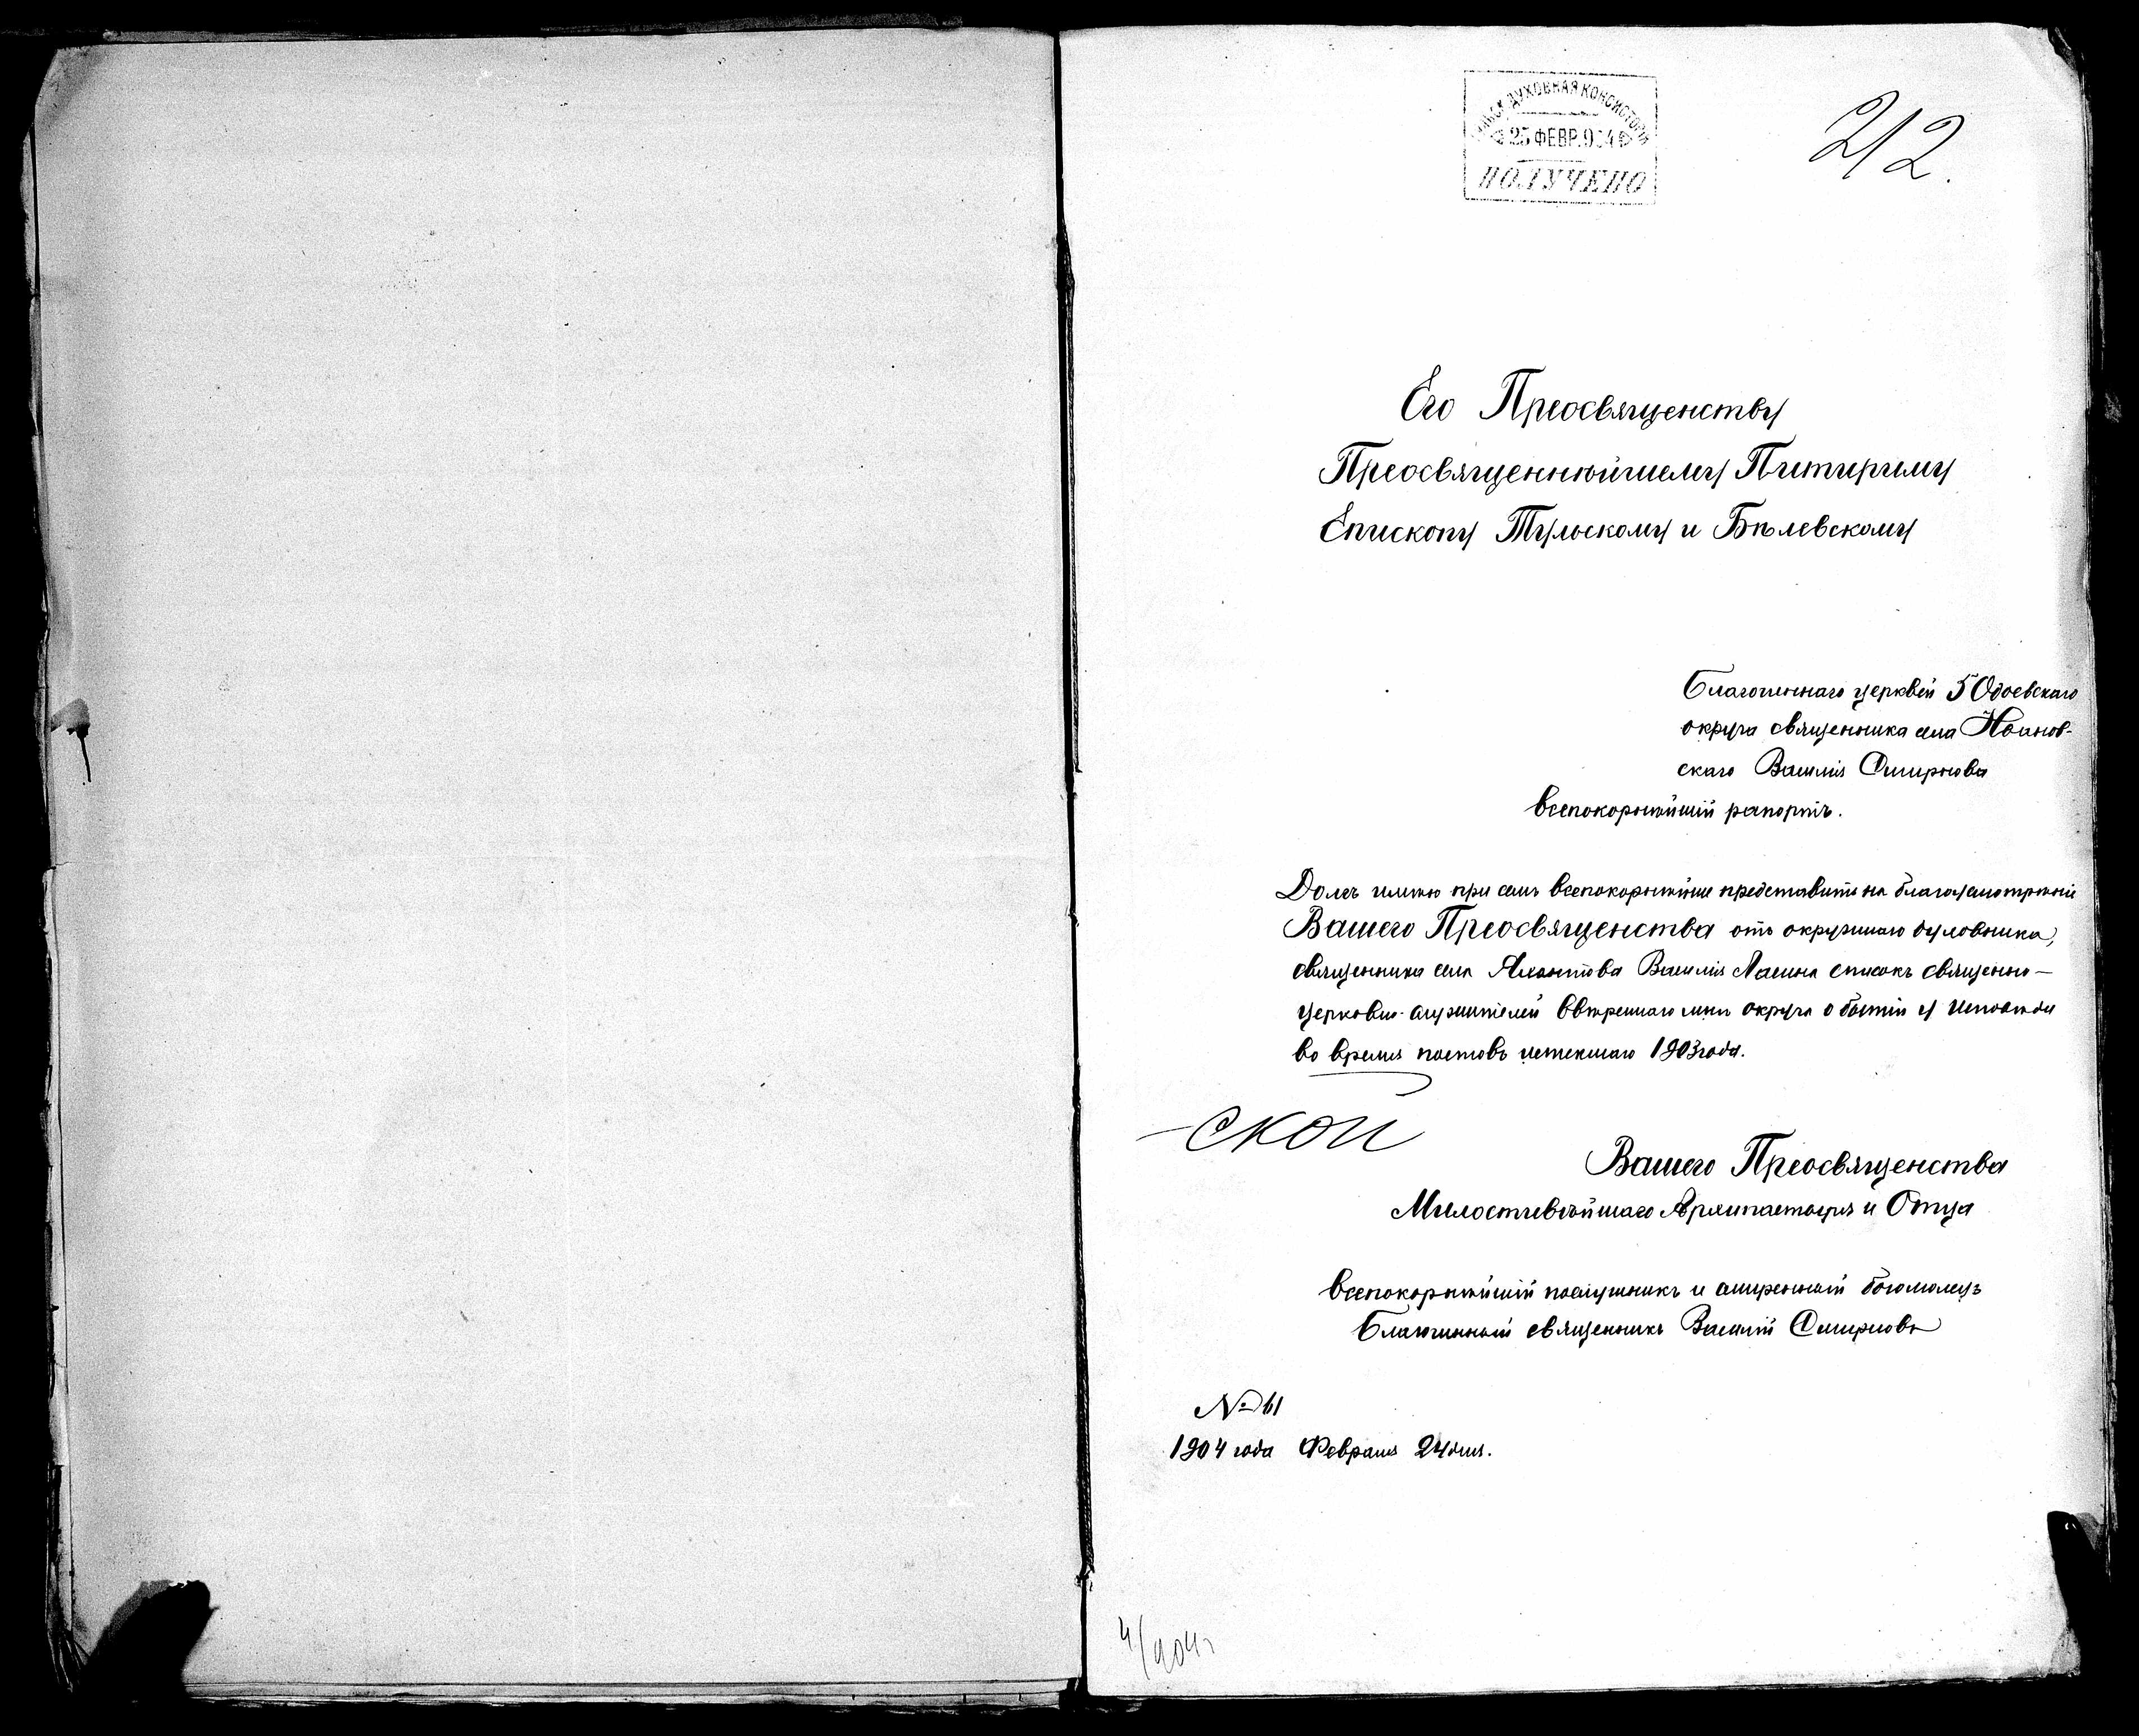 ДУХОВНАЯ КОНСИСТОРІЯ
25 ФЕВР. 904
ПОЛУЧЕНО
212.
Его Преосвященству
Преосвященнѣйшему Питириму
Епископу Тульскому и Бѣлевскому
Благочиннаго церквей 5 Одоевскаго
округа священника села Иванов-
скаго Василія Смирнова
всепокорнѣйшій рапортъ.
Долгъ имѣю при семъ всепокорнѣйше представить на благоусмотрѣніе
Вашего Преосвященства отъ окружнаго духовника,
священника села Василія списокъ священно-
церковно-служителей ввѣреннаго мнѣ округа о бытіи у исповѣди
во время постовъ истекшаго 1903 года.
Вашего Преосвященства
Милостивѣйшаго Архипастыря и Отца
всепокорнѣйшій послушникъ и смиренный богомолецъ
Благочинный священникъ Василій Смирновъ
№ 61
1904 года Февраля 24 дня.
4/904 г